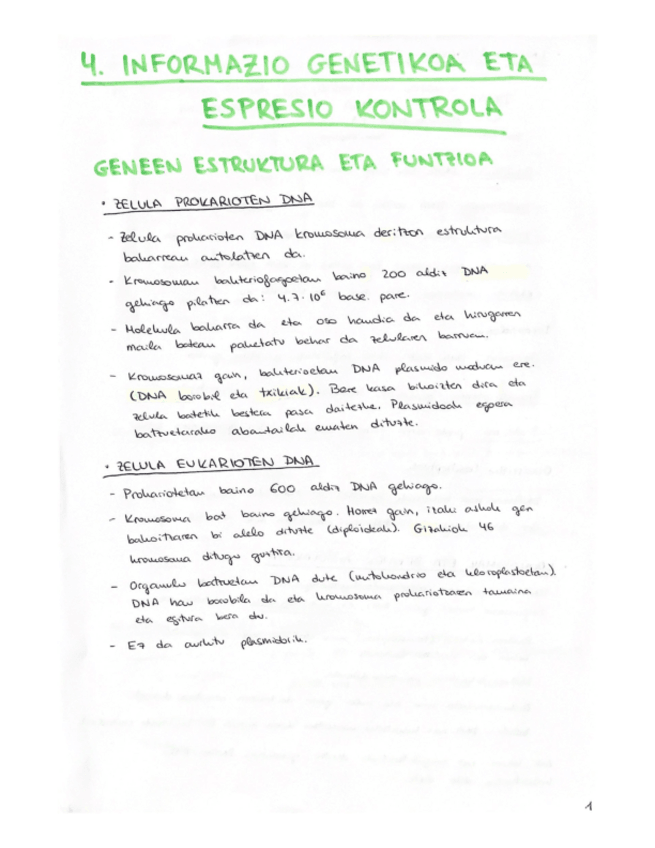 4. INFORMAZIO GENETIKOA ETA
ESPRESIO KONTROLA
GENEEN ESTRUKTURA ETA FUNTZIOA
• ZELULA PROKARIOTEN DNA
- Zelula prokarioten DNA kromosoma deritzon estruktura
bakarrean antolatzen da.
- Kromosoman bakteriofagoetan baino 200 aldiz DNA
gehiago pilatzen da: 4.7·10⁶ base pare.
- Molekula bakarra da eta oso handia da eta hirugarren
maila batean paketatu behar da zelularen barruan.
- Kromosomaz gain, bakterioetan DNA plasmido moduan ere.
(DNA borobil eta txikiak). Bere kasa bikoizten dira eta
zelula batetik bestera pasa daitezke. Plasmidoak egoera
batzuetarako abantailak ematen dituzte.
• ZELULA EUKARIOTEN DNA
- Prokariotetan baino 600 aldiz DNA gehiago.
- Kromosoma bat baino gehiago. Horrez gain, izaki askok gen
bakoitzaren bi alelo dituzte (diploideak). Gizakiok 46
kromosoma ditugu guztira.
- Organulu batzuetan DNA dute (mitokondrio eta kloroplastoetan).
DNA hau borobila da eta kromosoma prokariotzaren tamaina
eta egitura bera du.
- Ez da aurkitu plasmidorik.
1